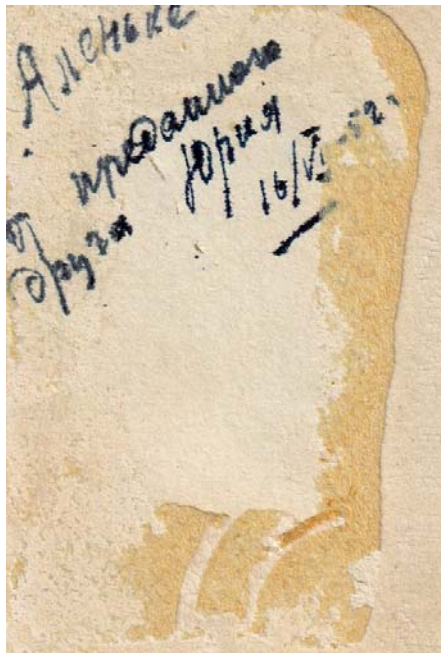 Аленьке
от преданного
друга Юрия
16/VI-52г.